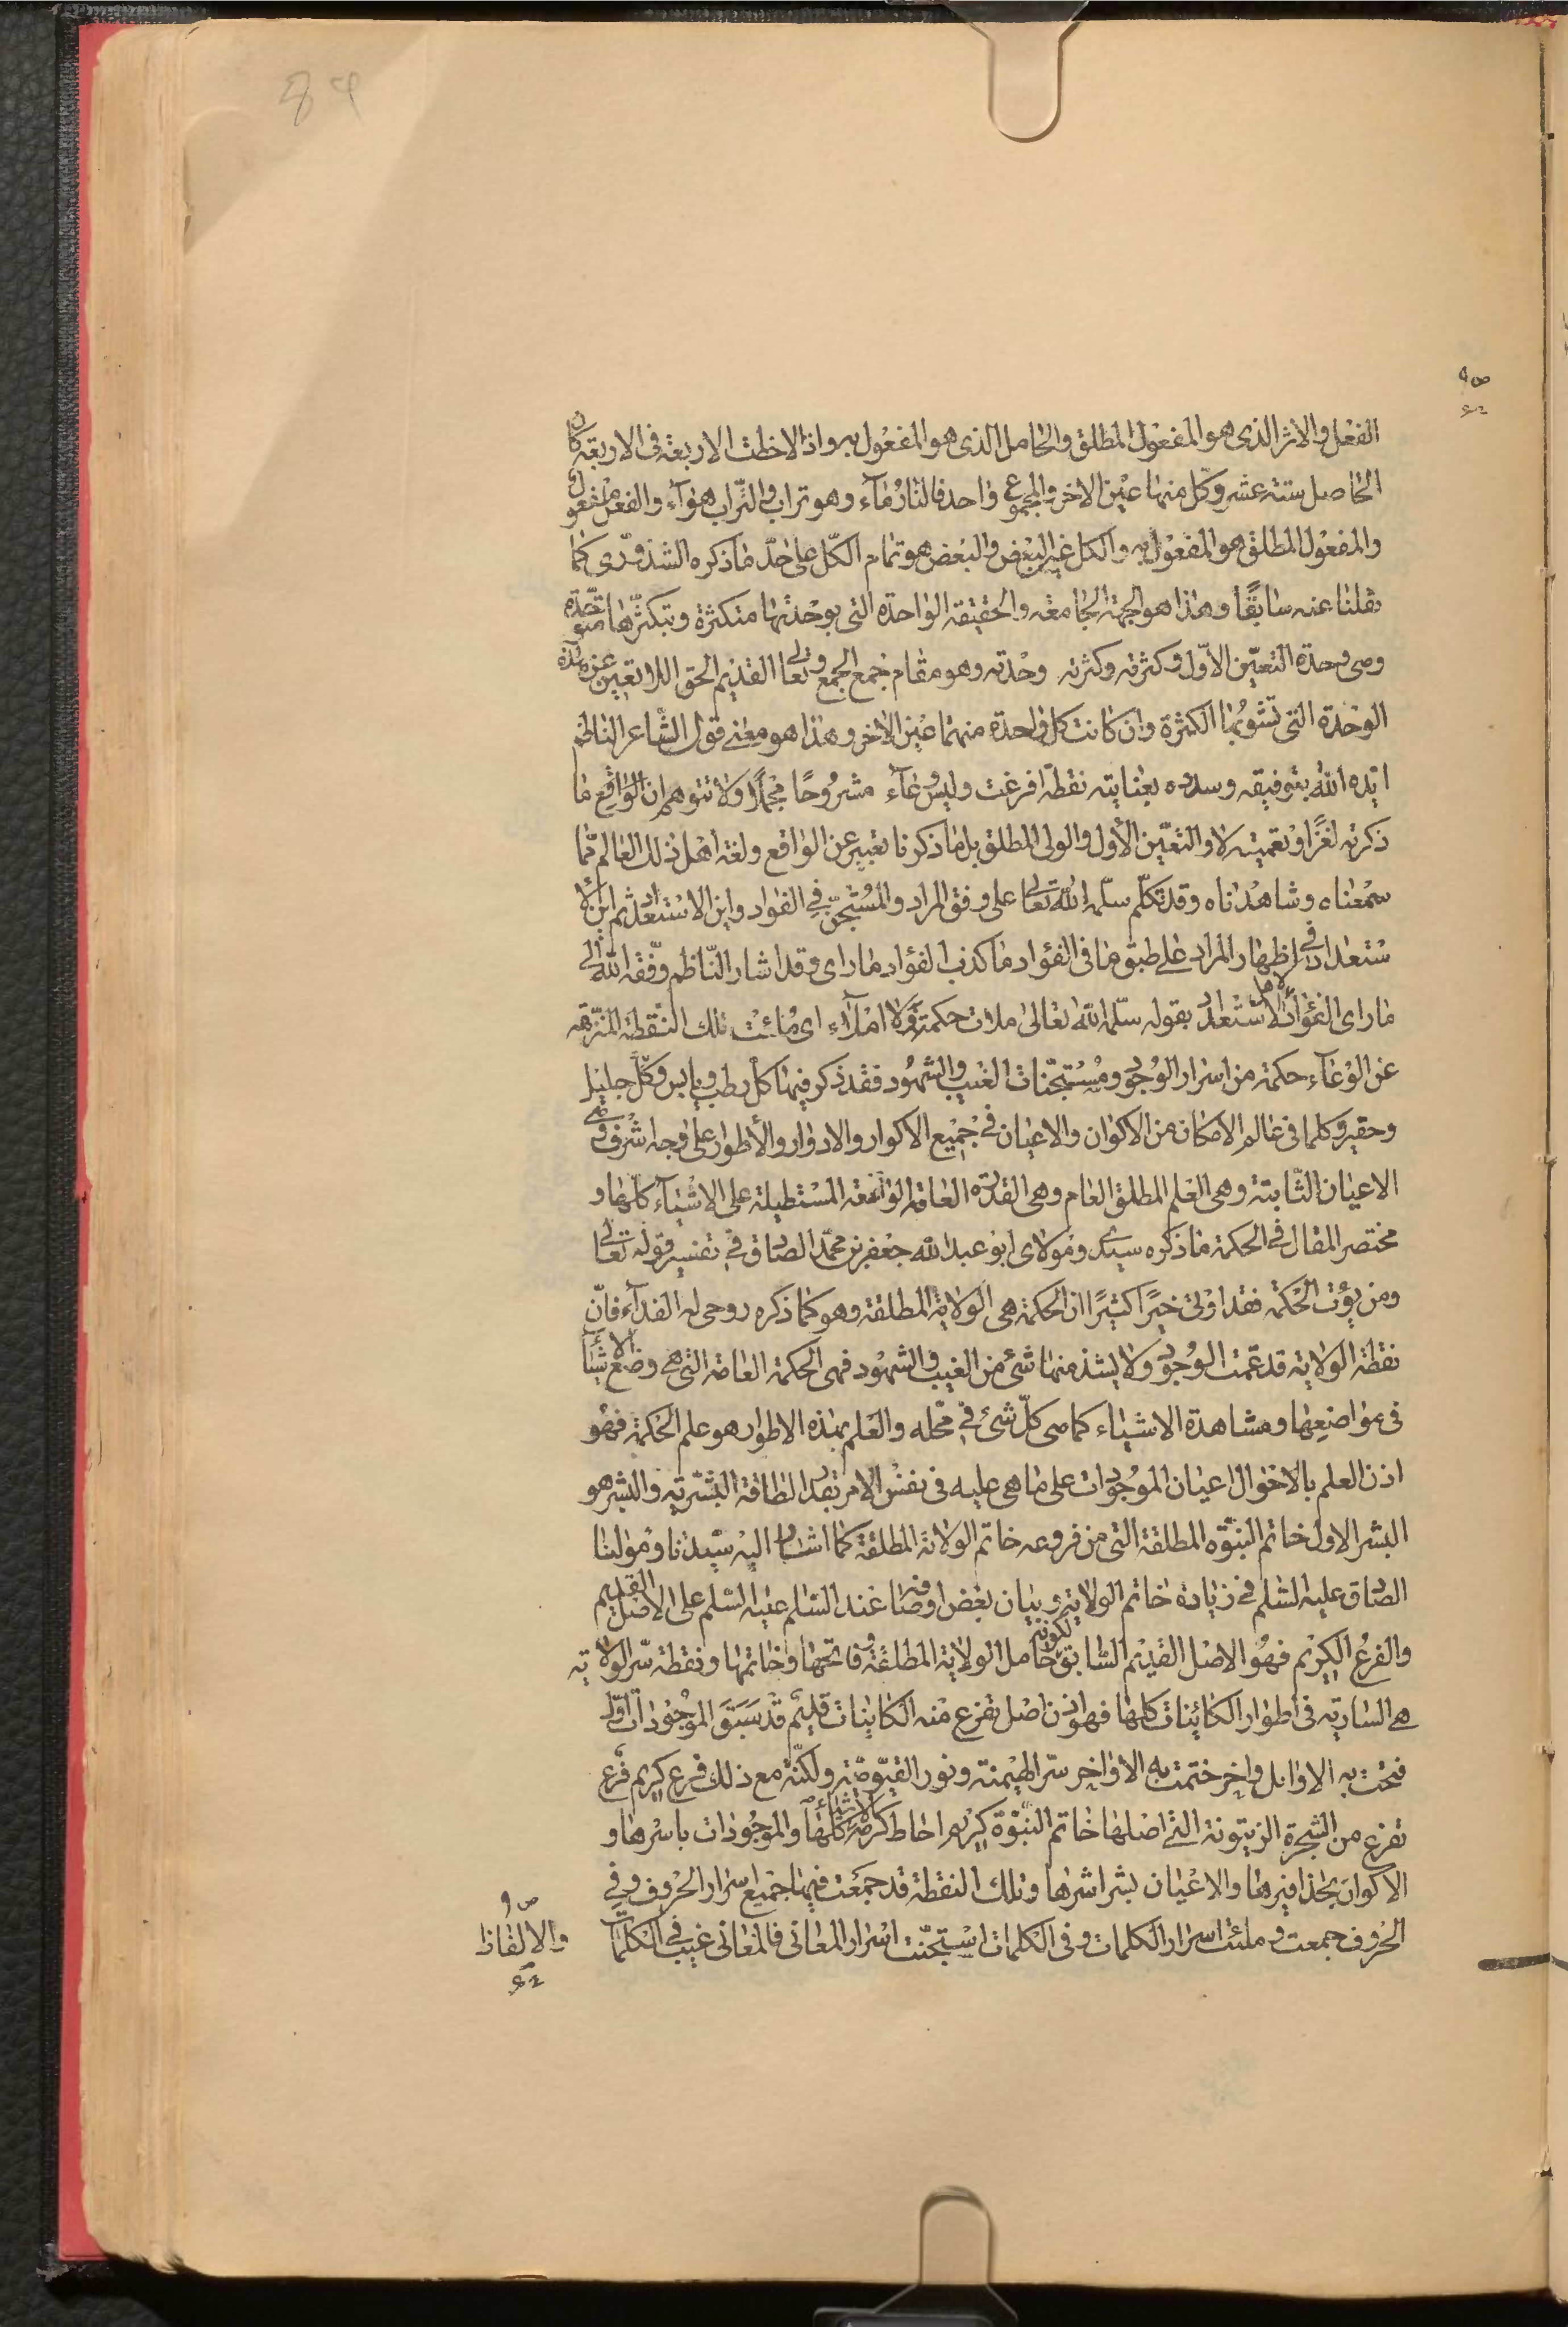 89
الفعل والاثر الذى هو المفعول المطلق والحامل الذى هو المفعول به واذا لاحظت الاربعة فى الاربعة كان
الحاصل ستة عشر وكل منها عين الاخر والمجموع واحد فالنار ماء وهو تراب والتراب هواء والفعل مفعول
والمفعول المطلق هو المفعول به والكل غير البعض والبعض هو تمام الكل على حد ما ذكره الشذورى كما
نقلنا عنه سابقًا وهذا هو الجهة الجامعة والحقيقة الواحدة التى بوحدتها متكثرة وبتكثرها متوحدة
وهى وحدة التعين الاول وكثرته وكثرته وحدته وهو مقام جمع الجمع وتعالى القديم الحق اللاتعين عن هذه
الوحدة التى تشوبها الكثرة وان كانت كل واحدة منهما عين الاخر وهذا هو معنى قول الشاعر الناظم
ايده الله بتوفيقه وسدده بعنايته نقطة افرغت وليس وعاء مشروحًا مجملًا ولا تتوهم ان الواقع ما
ذكرته لغزًا او تعمية لا والتعين الاول والولى المطلق بل ما ذكرنا تعبير عن الواقع ولغة اهل ذلك العالم مما
سمعناه وشاهدناه وقد تكلم سلمه الله تعالى على وفق المراد والمستجن فى الفؤاد وابن الاستعداد ثم ابن الا
ستعداد فى اظهار المراد على طبق ما فى الفؤاد ما كذب الفؤاد ما راى وقد اشار الناظم وفقه الله الى
ما راى الفؤاد الاستعداد بقوله سلمه الله تعالى ملات حكمة ولا املاء اى ملئت تلك النقطة المنزهة
عن الوعاء حكمة من اسرار الوجود ومستجنات الغيب والشهود فقد ذكر فيها كل رطب ويابس وكل جليل
وحقير وكلما فى عالم الامكان من الاكوان والاعيان فى جميع الاكوار والادوار والأطوار على وجه اشرف وهى
الاعيان الثابتة وهى العلم المطلق العام وهى القدرة العامة الواسعة المستطيلة على الاشياء كلها و
مختصر المقال فى الحكمة ما ذكره سيدى ومولاى ابو عبد الله جعفر بن محمد الصادق فى تفسير قوله تعالى
ومن يؤت الحكمة فقد اوتى خيرًا كثيرًا ان الحكمة هى الولاية المطلقة وهو كما ذكره روحى له الفداء فان
نقطة الولاية قد عمت الوجود ولا يشذ منها شئ من الغيب والشهود فهى الحكمة العامة التى هى وضع الاشياء
فى مواضعها ومشاهدة الاشياء كما هى كل شئ فى محله والعلم بهذه الاطوار هو علم الحكمة فهو
اذن العلم بالاحوال اعيان الموجودات على ما هى عليه فى نفس الامر بقدر الطاقة البشرية والبشر هو
البشر الاول خاتم النبوة المطلقة التى من فروعه خاتم الولاية المطلقة كما اشار اليه سيدنا ومولينا
الصادق عليه السلم فى زيارة خاتم الولاية وبيان بعض اوصافه عند السلام عليه السلم على الاصل القديم
والفرع الكريم فهو الاصل القديم السابق لكونه حامل الولاية المطلقة وفاتحها وخاتمها ونقطة سر الولاية
هى السارية فى اطوار الكائنات كلها فهو اذن اصل تفرع منه الكاينات قديم قد سبق الموجودات اول
فتحت به الاوايل واخر ختمت به الاواخر سر الهيمنة ونور القيومية ولكنه مع ذلك فرع كريم فرع
تفرع من الشجرة الزيتونة التى اصلها خاتم النبوة كريم احاط كرمه الاشياء كلها والموجودات باسرها و
الاكوان بحذافيرها والاعيان بشراشرها وتلك النقطة قد جمعت فيها جميع اسرار الحروف وفى
الحروف جمعت وملئت اسرار الكلمات وفى الكلمات استجنت اسرار المعانى فالمعانى غيب فى الكلمات
والالفاظ